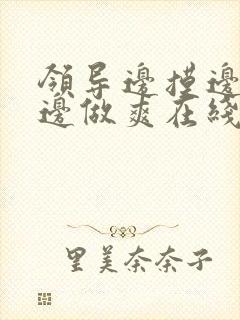 領导邊摸邊
邊做爽在綫
里美奈奈子